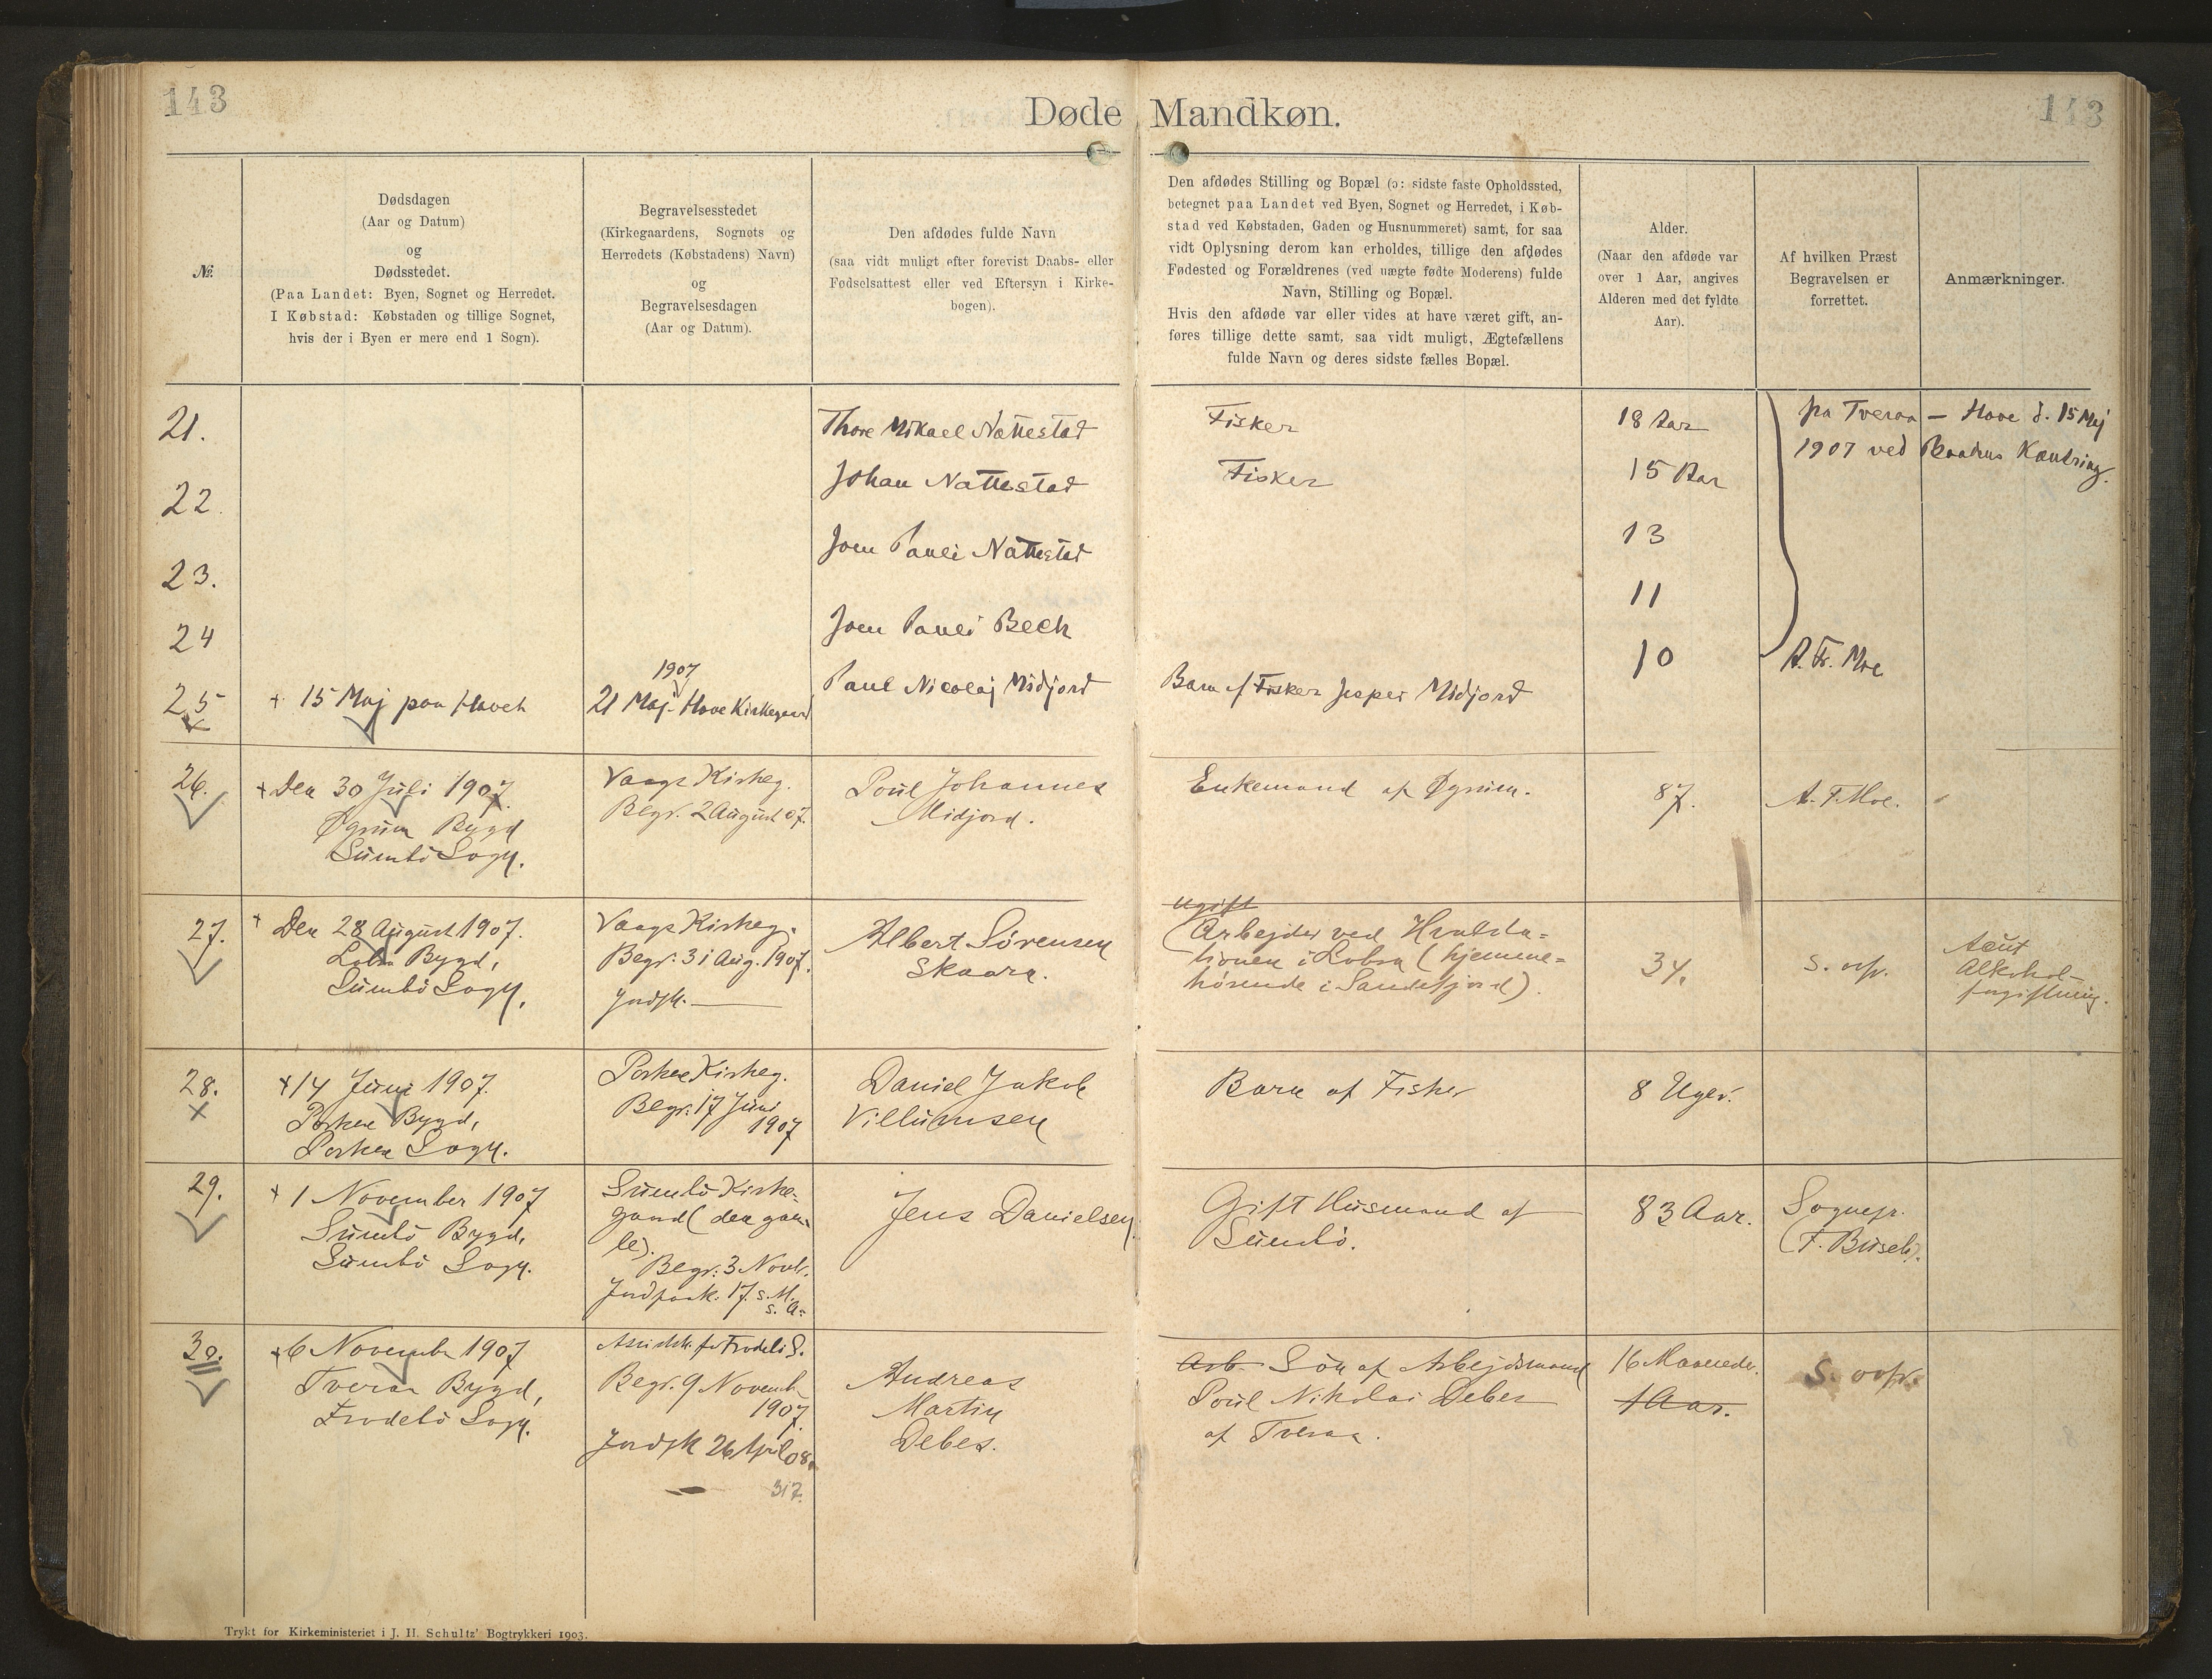 143
Døde Mandkøn.
143
№.
Dødsdagen
(Aar og Datum)
og
Dødsstedet.
(Paa Landet: Byen, Sognet og Herredet.
I Købstad: Købstaden og tillige Sognet,
hvis der i Byen er mere end 1 Sogn).
Begravelsesstedet
(Kirkegaardens, Sognets og
Herredets (Købstadens) Navn)
og
Begravelsesdagen
(Aar og Datum).
Den afdødes fulde Navn
(saa vidt muligt efter forevist Daabs- eller
Fødselsattest eller ved Eftersyn i Kirke-
bogen).
Den afdødes Stilling og Bopæl (ɔ: sidste faste Opholdssted,
betegnet paa Landet ved Byen, Sognet og Herredet, i Køb-
stad ved Købstaden, Gaden og Husnummeret) samt, for saa
vidt Oplysning derom kan erholdes, tillige den afdødes
Fødested og Forældrenes (ved uægte fødte Moderens) fulde
Navn, Stilling og Bopæl.
Hvis den afdøde var eller vides at have været gift, an-
føres tillige dette samt, saa vidt muligt, Ægtefællens
fulde Navn og deres sidste fælles Bopæl.
Alder.
(Naar den afdøde var
over 1 Aar, angives
Alderen med det fyldte
Aar).
Af hvilken Præst
Begravelsen er
forrettet.
Anmærkninger.
21.
Thore Mikael Nattestad
Fisker
18 Aar
paa Tveraa – Hove d. 15 Maj
1907 ved Baadens Kæntring.
22.
Johan Nattestad
Fisker
15 Aar
23.
Joen Pauli Nattestad
13
24
Joen Pauli Bech
11
25
+ 15 Maj paa Havet
1907
21 Maj - Hove Kirkegaard
Paul Nicolaj Midjord
Barn af Fisker Jesper Midjord
10
A. Fr. Moe
26.
+ Den 30 Juli 1907.
Øgrum Bygd
Sumbö Sogn.
Vaags Kirkeg.
Begr. 2 August 07.
Poul Johannes
Midjord.
Enkemand af Øgrum.
87.
A. F. Moe.
27.
+ Den 28 August 1907.
Lobra Bygd,
Sumbö Sogn.
Vaags Kirkeg.
Begr. 31 Aug. 1907.
Jordpk. —
Albert Sörensen
Skaara.
ugift
(Arbejder ved Hvalsta=
tionen i Lobra (hjemme=
hörende i Sandefjord).
34.
S. ovfr.
Acut
Alkohol-
forgiftning.
28.
+ 14 Juni 1907.
Porkere Bygd,
Porkere Sogn.
Porkere Kirkeg.
Begr. 17 Juni
1907
Daniel Jakob
Villumsen
Barn af Fisker
8 Uger.
29.
+ 1 November 1907
Sumbö Bygd,
Sumbö Sogn.
Sumbö Kirke-
gaard (den gam-
le).
Begr. 3 Novbr.
Jordpaak. 17. s. M.
s. A.
Jens Danielsen
Gift Husmand af
Sumbö.
83 Aar.
Sognepr.
(F. Busch).
30.
+ 6 November 1907
Tveraa Bygd,
Frodebö Sogn.
Begr. 9 Novemb.
1907.
Jordpk 26 April 08.
317.
Andreas
Martin
Debes.
Arb. Sön af Arbejdsmand
Poul Nikolai Debes
af Tveraa.
16 Maaneder.
1 Aar.
S. ovfr.
Trykt for Kirkeministeriet i J. H. Schultz' Bogtrykkeri 1903.